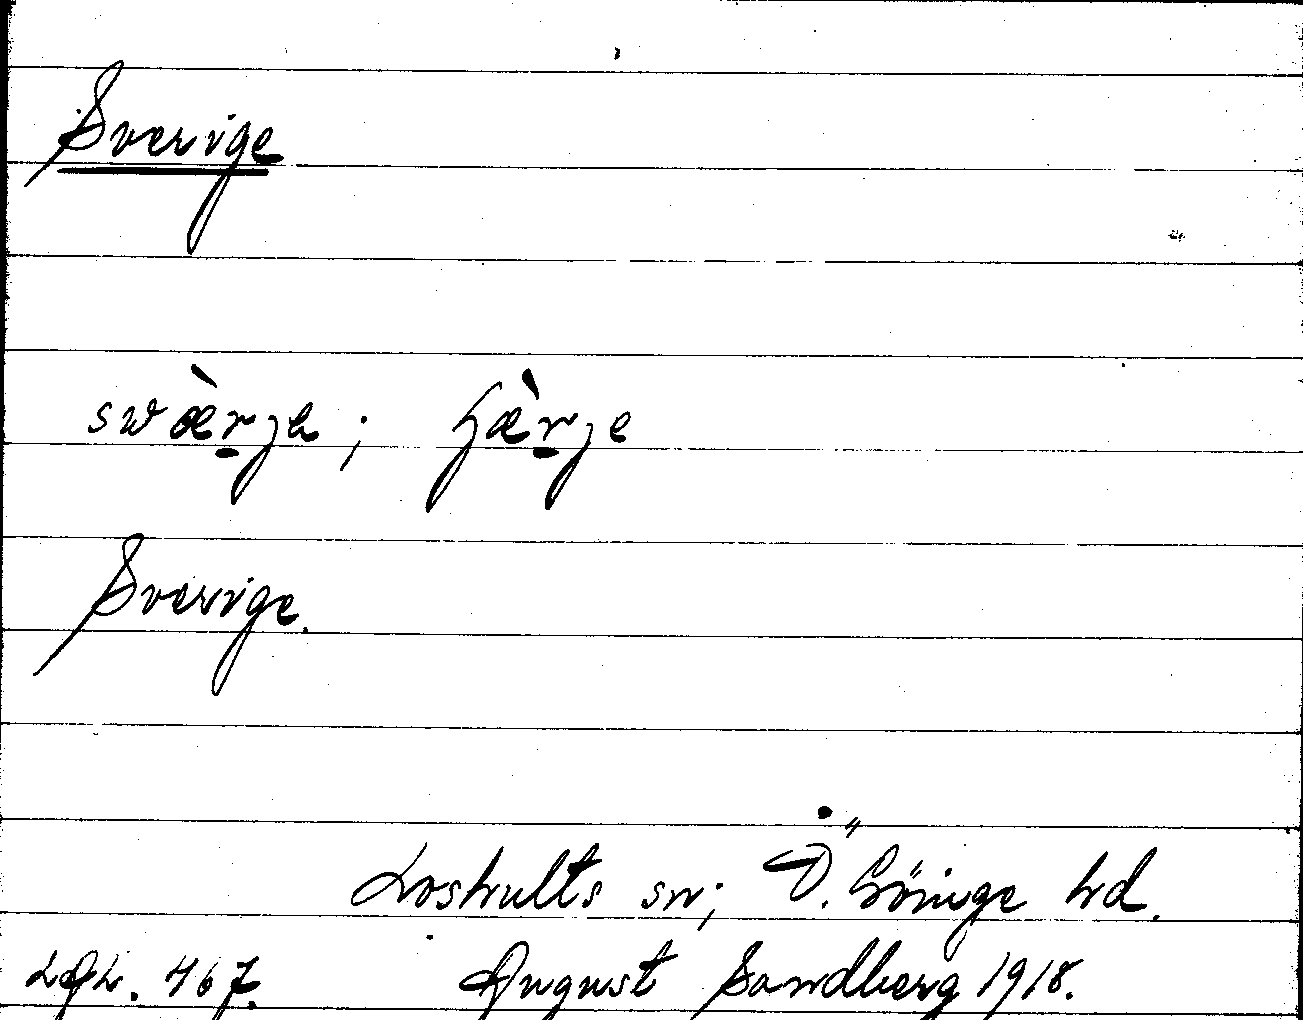 Sverige
swæ̀r̠je; hæ̀r̠je
Sverige.
Loshults sn; Ö. Göinge hd.
LAL. 467. August Sandberg 1918.